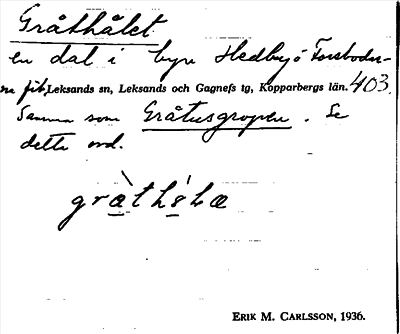 Gråthålet
en dal i byn Hedbyfors
Leksands sn, Leksands och Gagnefs tg, Kopparbergs län. 403.
Samma som Gråtusgropen. Se
detta ord.
ERIK M. CARLSSON, 1936.